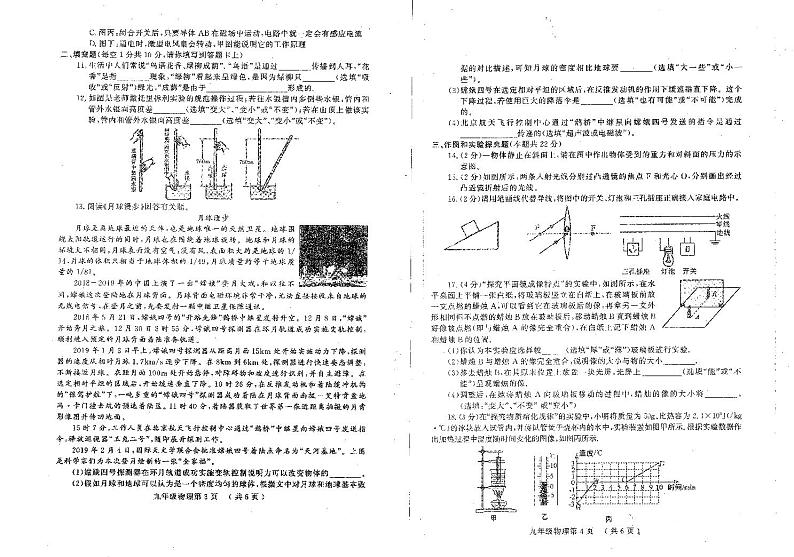 C. 图丙:闭合开关后,只要导体 AB 在磁场中运动,电路中就一定会有感应电流
D. 图丁:通电时,微型电风扇会转动,甲图能说明它的工作原理
二、填空题(每空 1 分共 16 分,请你填写到答题卡上)
11. 生活中人们常说“鸟语花香、绿柳成荫”。“鸟语”是通过______传播到人耳,“花
香”是指______现象,“绿柳”看起来呈绿色,是因为绿柳只______(选填“吸
收”或“反射”)绿光,“成荫”是由于______形成的.
12. 如图是老师做托里拆利实验的规范操作过程;若往水银槽内多倒些水银,管内和
管外水银面高度差______(选填“变大”、“变小”或“不变”);若在山顶上做该实
验,管内和管外水银面高度差______(选填“变大”、“变小”或“不变”).
13. 阅读《月球漫步》回答有关题。
月球漫步
月球是离地球最近的天体,也是地球唯一的天然卫星。地球围
绕太阳轨道运行的同时,月球也在围绕着地球旋转。地球和月球的
环境大不相同,月球表面没有空气,没有风,表面积大约是地球的 1/
14,月球的体积只相当于地球体积的 1/49,月球质量约等于地球质
量的 1/81。
2018-2019 年的中国上演了一出“嫦娥”奔月大戏,和以往不
同,嫦娥这次登陆地在月球背面。月球背面电磁环境非常干净,无法直接接收来自地球的
无线电信号,在登月之前,先要发射一颗中继卫星保障通讯。
2018 年 5 月 21 日,嫦娥四号的“开路先锋”鹊桥中继星发射升空。12 月 8 日,“嫦娥”
开始奔月。12 月 30 日 8 时 55 分,嫦娥四号探测器在环月轨道成功实施变轨控制,
顺利进入预定的月球背面着陆准备轨道。
2019 年 1 月 3 日早上,嫦娥四号探测器从距离月面 15km 处开始实施动力下降,探测
器的速度从相对月球 1.7km/s 逐步下降。在 8km 到 6km 处,探测器进行快速姿态调整,
不断接近月球。在距月面 100m 处开始悬停,对障碍物和坡度进行识别,并自主避障。在
选定相对平坦的区域后,开始缓速垂直下降。10 时 26 分,在反推发动机和着陆缓冲机构
的“保驾护航”下,一吨多重的“嫦娥四号”探测器成功着陆在月球背面南极-艾特肯盆地冯
·卡门撞击坑的预选着陆区。11 时 40 分,着陆器获取了世界第一张近距离拍摄的月背
影像图并传回地面。
15 时 7 分,工作人员在北京航天飞行控制中心通过“鹊桥”中继星向嫦娥四号发送指
令,释放巡视器“玉兔二号”,随即展开探测工作。
2019 年 2 月 4 日,国际天文学联合会批准嫦娥四号着陆点命名为“天河基地”。上图
是科学家们为本次登月绘制的一张“全家福”。
(1)嫦娥四号探测器在环月轨道成功实施变轨控制说明力可以改变物体的______.
(2)假如月球和地球可以认为是一个密度均匀的球体,根据文中对月球和地球基本数
九年级物理第 3 页 (共 6 页)
据的对比描述,可知月球的密度相比地球要______(选填“大一些”或“小一
些”)。
(3)嫦娥四号在选定相对平坦的区域后,在反推发动机的作用下缓速垂直下降。这个
下降过程,若使用巨大的降落伞是______(选填“也有可能”或“不可能”)完成
的。
(4)北京航天飞行控制中心通过“鹊桥”中继星向嫦娥四号发送的指令是通过
______传递的(选填“超声波或电磁波”)。
三、作图和实验探究题(本题共 22 分)
14. (2 分)一物体静止在斜面上,请在图中作出物体受到的重力和对斜面的压力的示
意图。
15. (2 分)如图所示,两条入射光线分别过凸透镜的焦点 F 和光心 O,分别画出经过
凸透镜折射后的光线。
16. (2 分)请用笔画线代替导线,将图中的开关、灯泡和三孔插座正确接入家庭电路中。
火线
零线
地线
三孔插座 灯泡 开关
17. (4 分)“探究平面镜成像特点”的实验中,如图所示,在水
平桌面上平铺一张白纸,将玻璃板竖立在白纸上,在玻璃板前放
一支点燃的蜡烛 A,可以看到它在玻璃板后的像,再拿另一支外
形相同但不点燃的蜡烛 B 放在玻璃板后,移动蜡烛 B 直到蜡烛 B
好像被点燃(即与蜡烛 A 的像完全重合),在白纸上记下蜡烛 A
和蜡烛 B 的位置。
(1)你认为本实验应选择较______(选填“厚”或“薄”)玻璃板进行实验。
(2)蜡烛 B 与蜡烛 A 的像完全重合,说明像的大小与物的大小______.
(3)移去蜡烛 B,在其原来位置上放置一块光屏,光屏上______(选填“能”或“不
能”)呈现蜡烛的像。
(4)调整后,在继续蜡烛 A 向玻璃板移动的过程中,蜡烛的像的大小将______。
(选填:“变大”、“不变”或“变小”)
18. (5 分)在“探究物质熔化规律”的实验中,小明将质量为 50g,比热容为 2.1×10³J/(kg
·℃)的冰块放入试管内,并将试管置于烧杯内的水中,实验装置如图甲所示,根据实验数据作
出加热过程中温度随时间变化的图像,如图丙所示.
温度/℃
时间/min
甲 乙 丙
九年级物理第 4 页 (共 6 页)